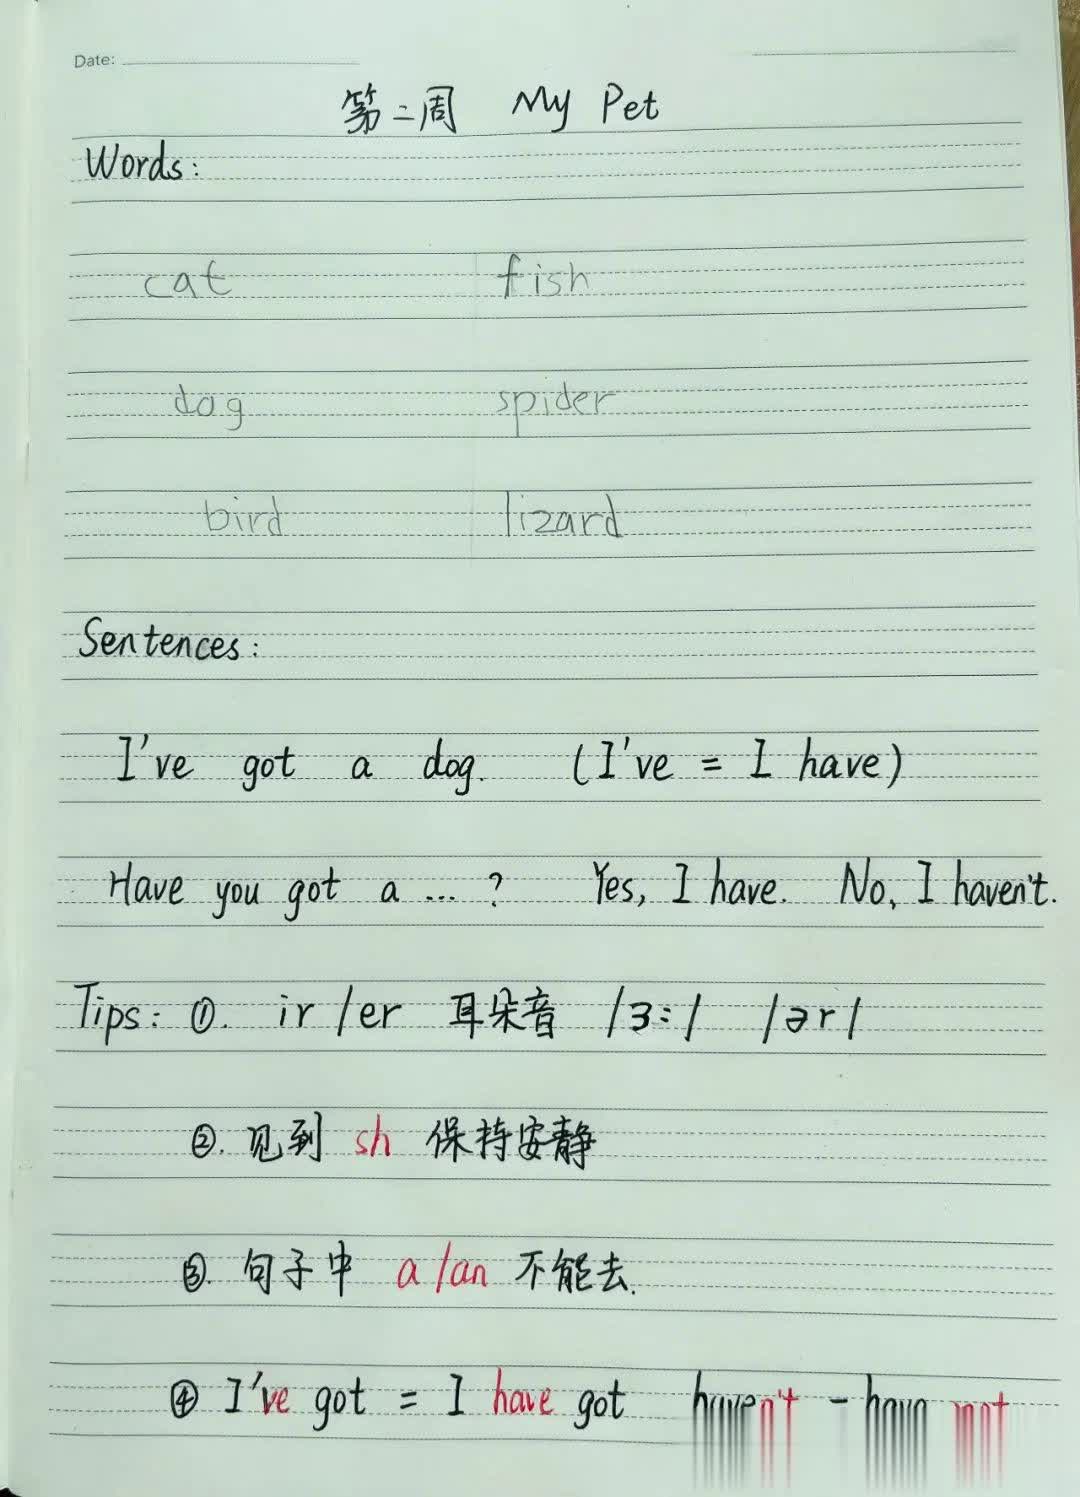 Date:
第二周 My Pet
Words:
cat fish
dog spider
bird lizard
Sentences:
I've got a dog. (I've = I have)
Have you got a ... ? Yes, I have. No, I haven't.
Tips: ①. ir /er 耳朵音 /ɜː/ /ər/
②. 见到 sh 保持安静
③. 句子中 a /an 不能去.
④ I've got = I have got haven't